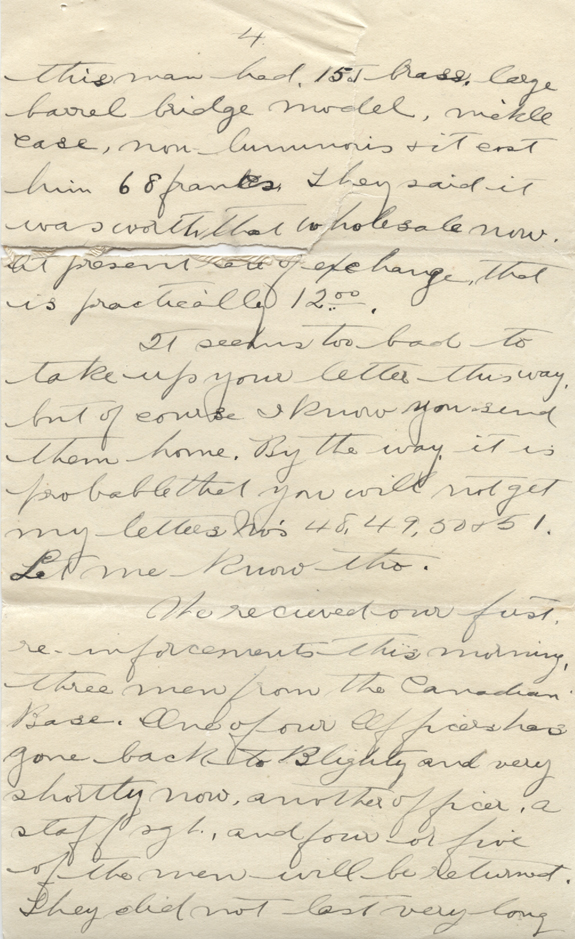 4
this man had, 15J brass, large
barrel bridge model, nickle
case, non-luminoris & it cost
him 68 francs. They said it
was worth that wholesale now.
At present rate of exchange, that
is practically 12.00.
It seems too bad to
take up your letter this way,
but of course I know you send
them home. By the way it is
probable that you will not get
my letters No's 48, 49, 50 & 51.
Let me know tho.
We recieved our first,
re-inforcements this morning,
three men from the Canadian
Base. One of our Officers has
gone back to Blighty and very
shortly now, another officer, a
staff sgt., and four or five
of the men will be returned.
They did not last very long